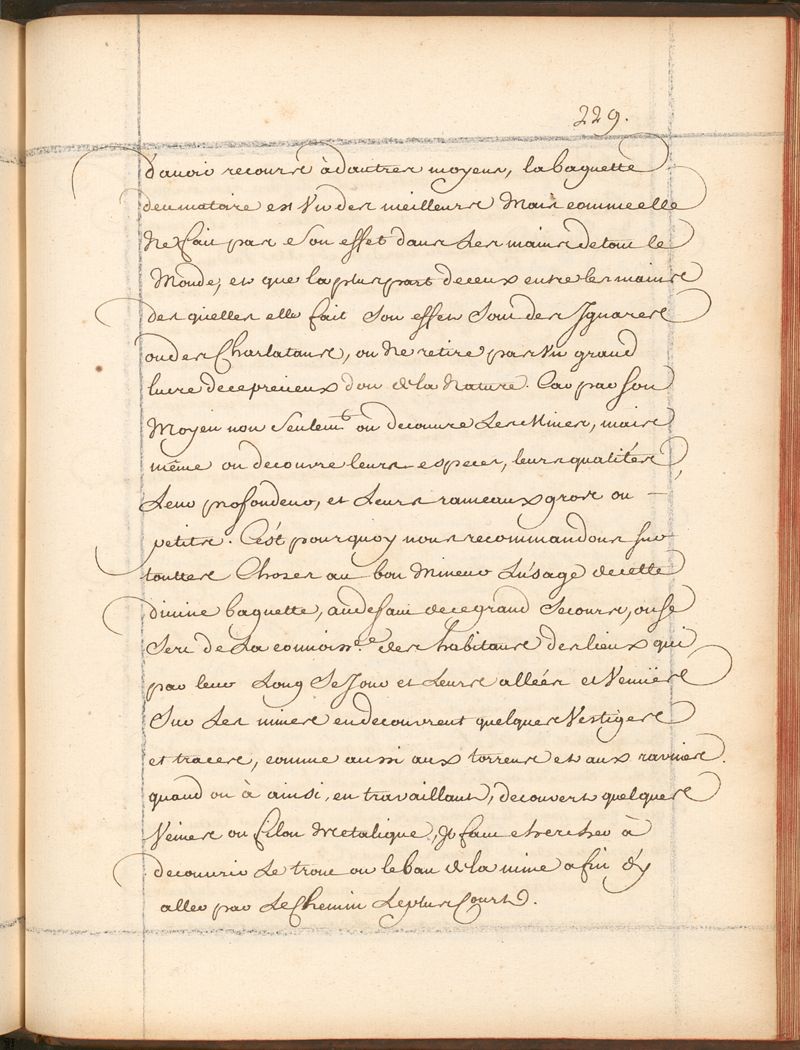 229.
d'avoir recours à d'autres moyens, la baguette
deumatoire est Un des meilleurs Mais comme elle
Ne fait pas Son effet dans Les mains de tout le
Monde, et que la plus part de ceux entre les mains
des quelles elle fait Son effet Sont des Jgnares
ou des Charlatans, on Ne retire pas Un grand
lucre de ce precieux don de la Nature. Car par Son
Moyen non Seulemt on decouvre Les Mines, mais
même on decouvre leurs especes, leurs qualités
Leur profondeur, et Leurs rameaux gros ou —
petits. C'est pourquoy nous recommandons sur
touttes Choses au bon Mineur L'usage de cette
divine baguette, au defaut de ce grand Secours, on se
Sert de La connoisse. des habitans des lieux qui
par leur Long Sejour et Leurs allées et Venües
Sur Les mines en decouvrent quelques Vestiges
et traces, comme aussi aux torrens et aux ravines.
quand on à ainsi, en travaillant, decouvert quelques
Veines ou filon Metalique, Jl faut chercher à
decouvrir Le tronc ou le banc de la mine afin d'y
aller par Le Chemin Le plus Court.